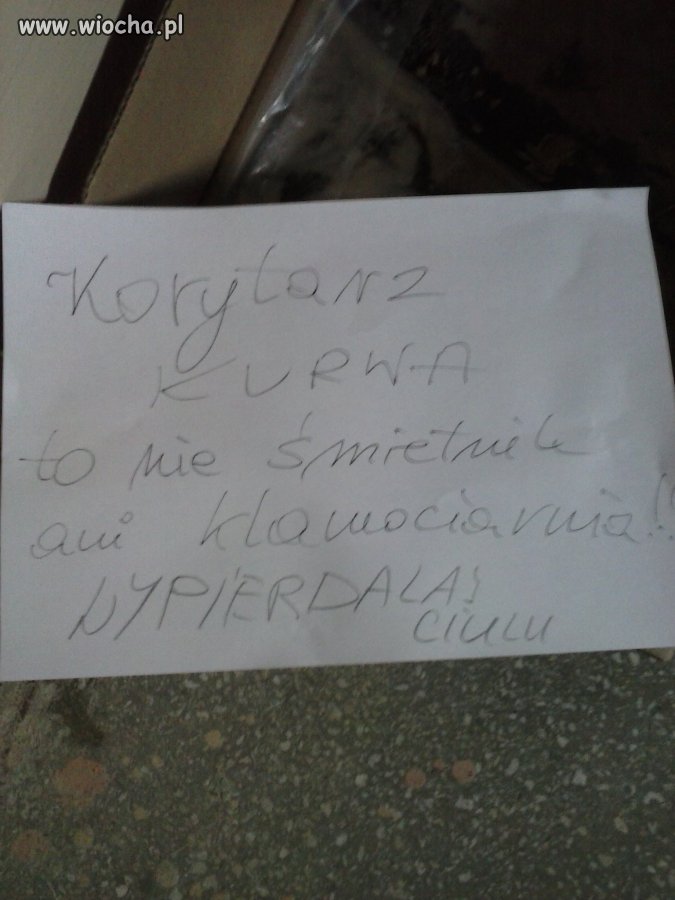 www.wiocha.pl
Korytarz
KURWA
to nie śmietnik
ani klamociarnia!!
WYPIERDALAJ
CIULU